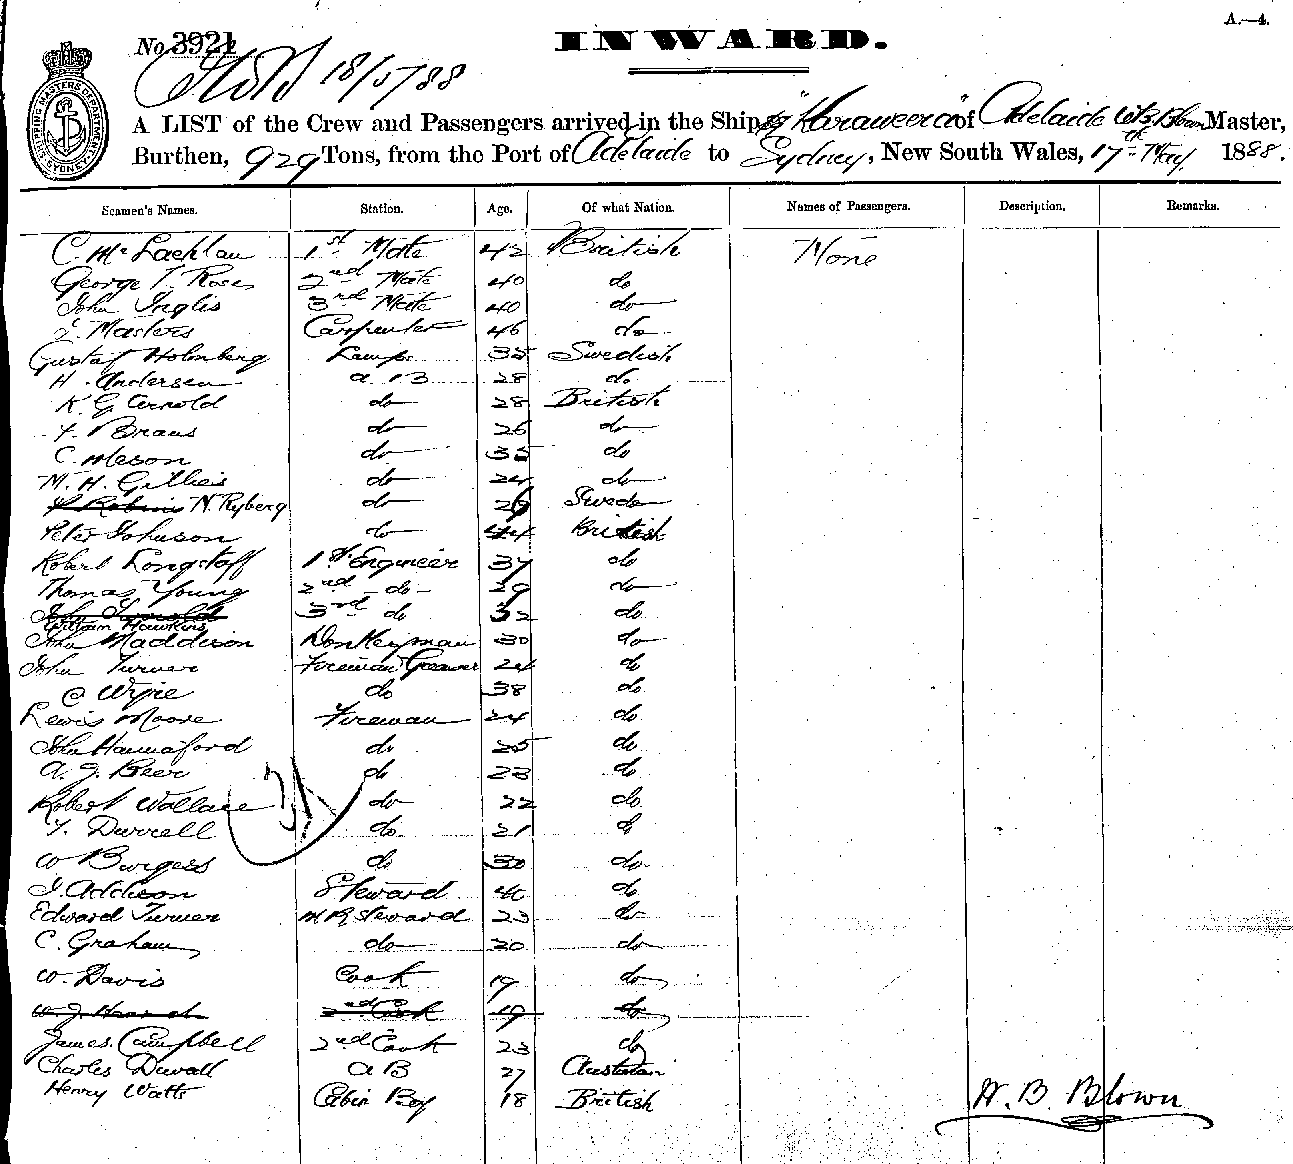 A.—4.
No 3921
INWARD.
18/5/88
A LIST of the Crew and Passengers arrived in the Ship "Koraweera" of Adelaide W. B. Blown Master,
Burthen, 929 Tons, from the Port of Adelaide to Sydney, New South Wales, 17th May 1888.
SHIPPING MASTERS DEPARTMENT SYDNEY
Seamen's Names. Station. Age. Of what Nation. Names of Passengers. Description. Remarks.
C. McLachlan 1st Mate 42 British None
George T. Roses 2nd Mate 40 do
John Inglis 3rd Mate 40 do
J. Masters Carpenter 46 do
Gustaf Holmberg Lamps 35 Swedish
H. Andersen A B 28 do
K. G. Arnold do 28 British
do 26 do
C. Meson do 35 do
N. H. Gillies do 24 do
N. Ryberg do 26 Sweden
Peter Johnson do 44 British
Robert Longstaff 1st Engineer 37 do
Thomas Young 2nd do 29 do
3rd do 32 do
William Hawkins
John Maddison Donkeyman 30 do
John Turner Fireman Greaser 24 do
C Wyjie do 38 do
Lewis Moore Fireman 24 do
John Hannaford do 25 do
A. J. Beer do 23 do
Robert Wallace do 22 do
F. Durrell do 21 do
W Burgess do 30 do
J. Addison Steward 40 do
Edward Turner M. R. Steward 23 do
C. Graham do 20 do
W. Davis Cook 19 do
2nd Cook 19 do
James Campbell 2nd Cook 23 do
Charles Duvall A B 27 Austrian
Henry Watts Cabin Boy 18 British
W. B. Blown